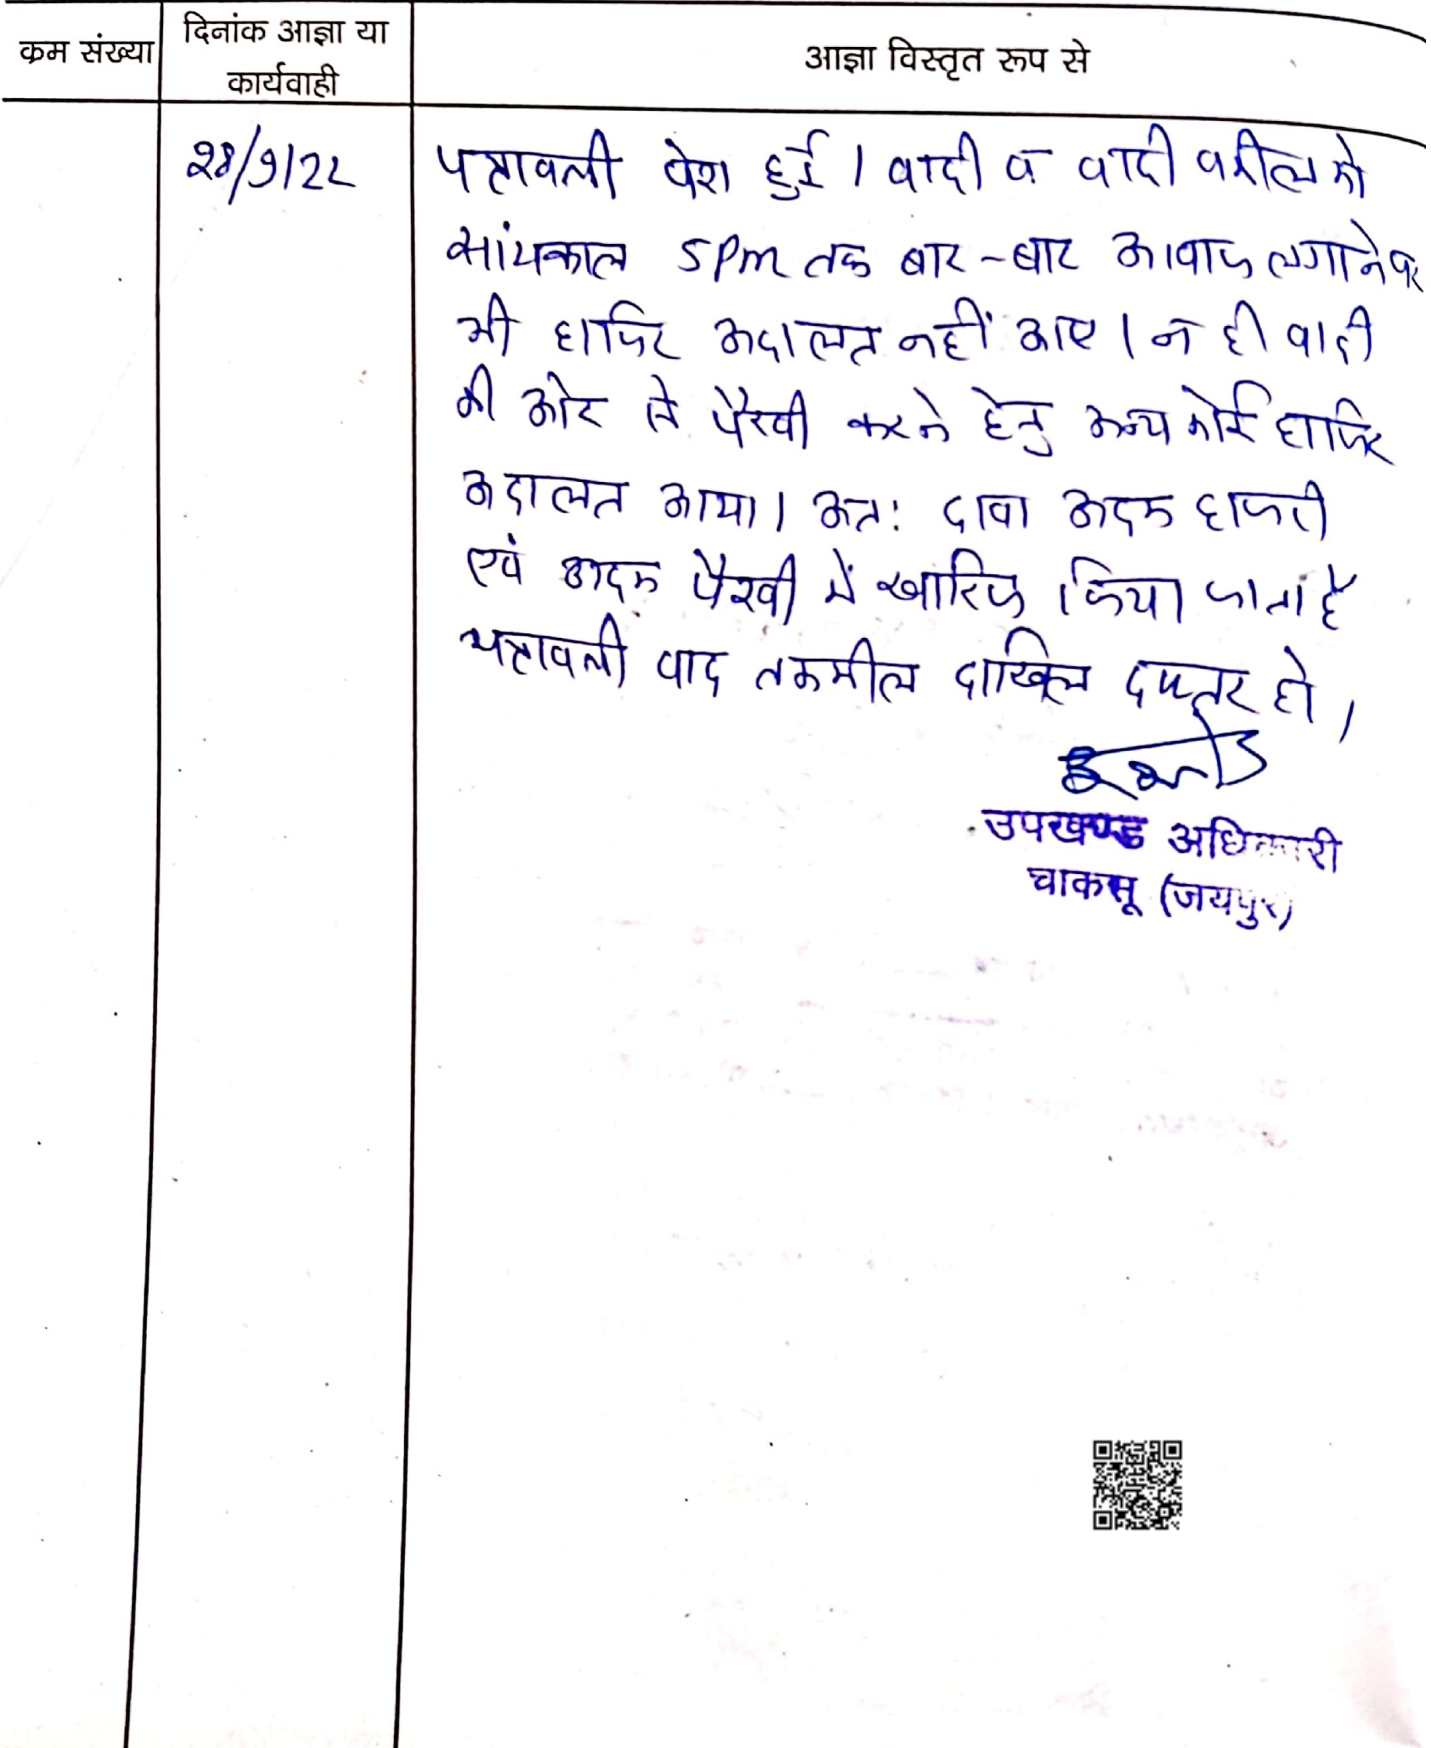 क्रम संख्या
दिनांक आज्ञा या
कार्यवाही
आज्ञा विस्तृत रूप से
28/9/22
पत्रावली पेश हुई । वादी व वादी वकील को
सांयकाल 5 Pm तक बार-बार आवाज लगाने पर
भी हाजिर अदालत नहीं आए । न ही वादी
की ओर से पैरवी करने हेतु अन्य कोई हाजिर
अदालत आया । अतः दावा अदम हाजरी
एवं अदम पैरवी में खारिज किया जाता है
पत्रावली बाद तकमील दाखिल दफ्तर हो ।
उपखण्ड अधिकारी
चाकसू (जयपुर)